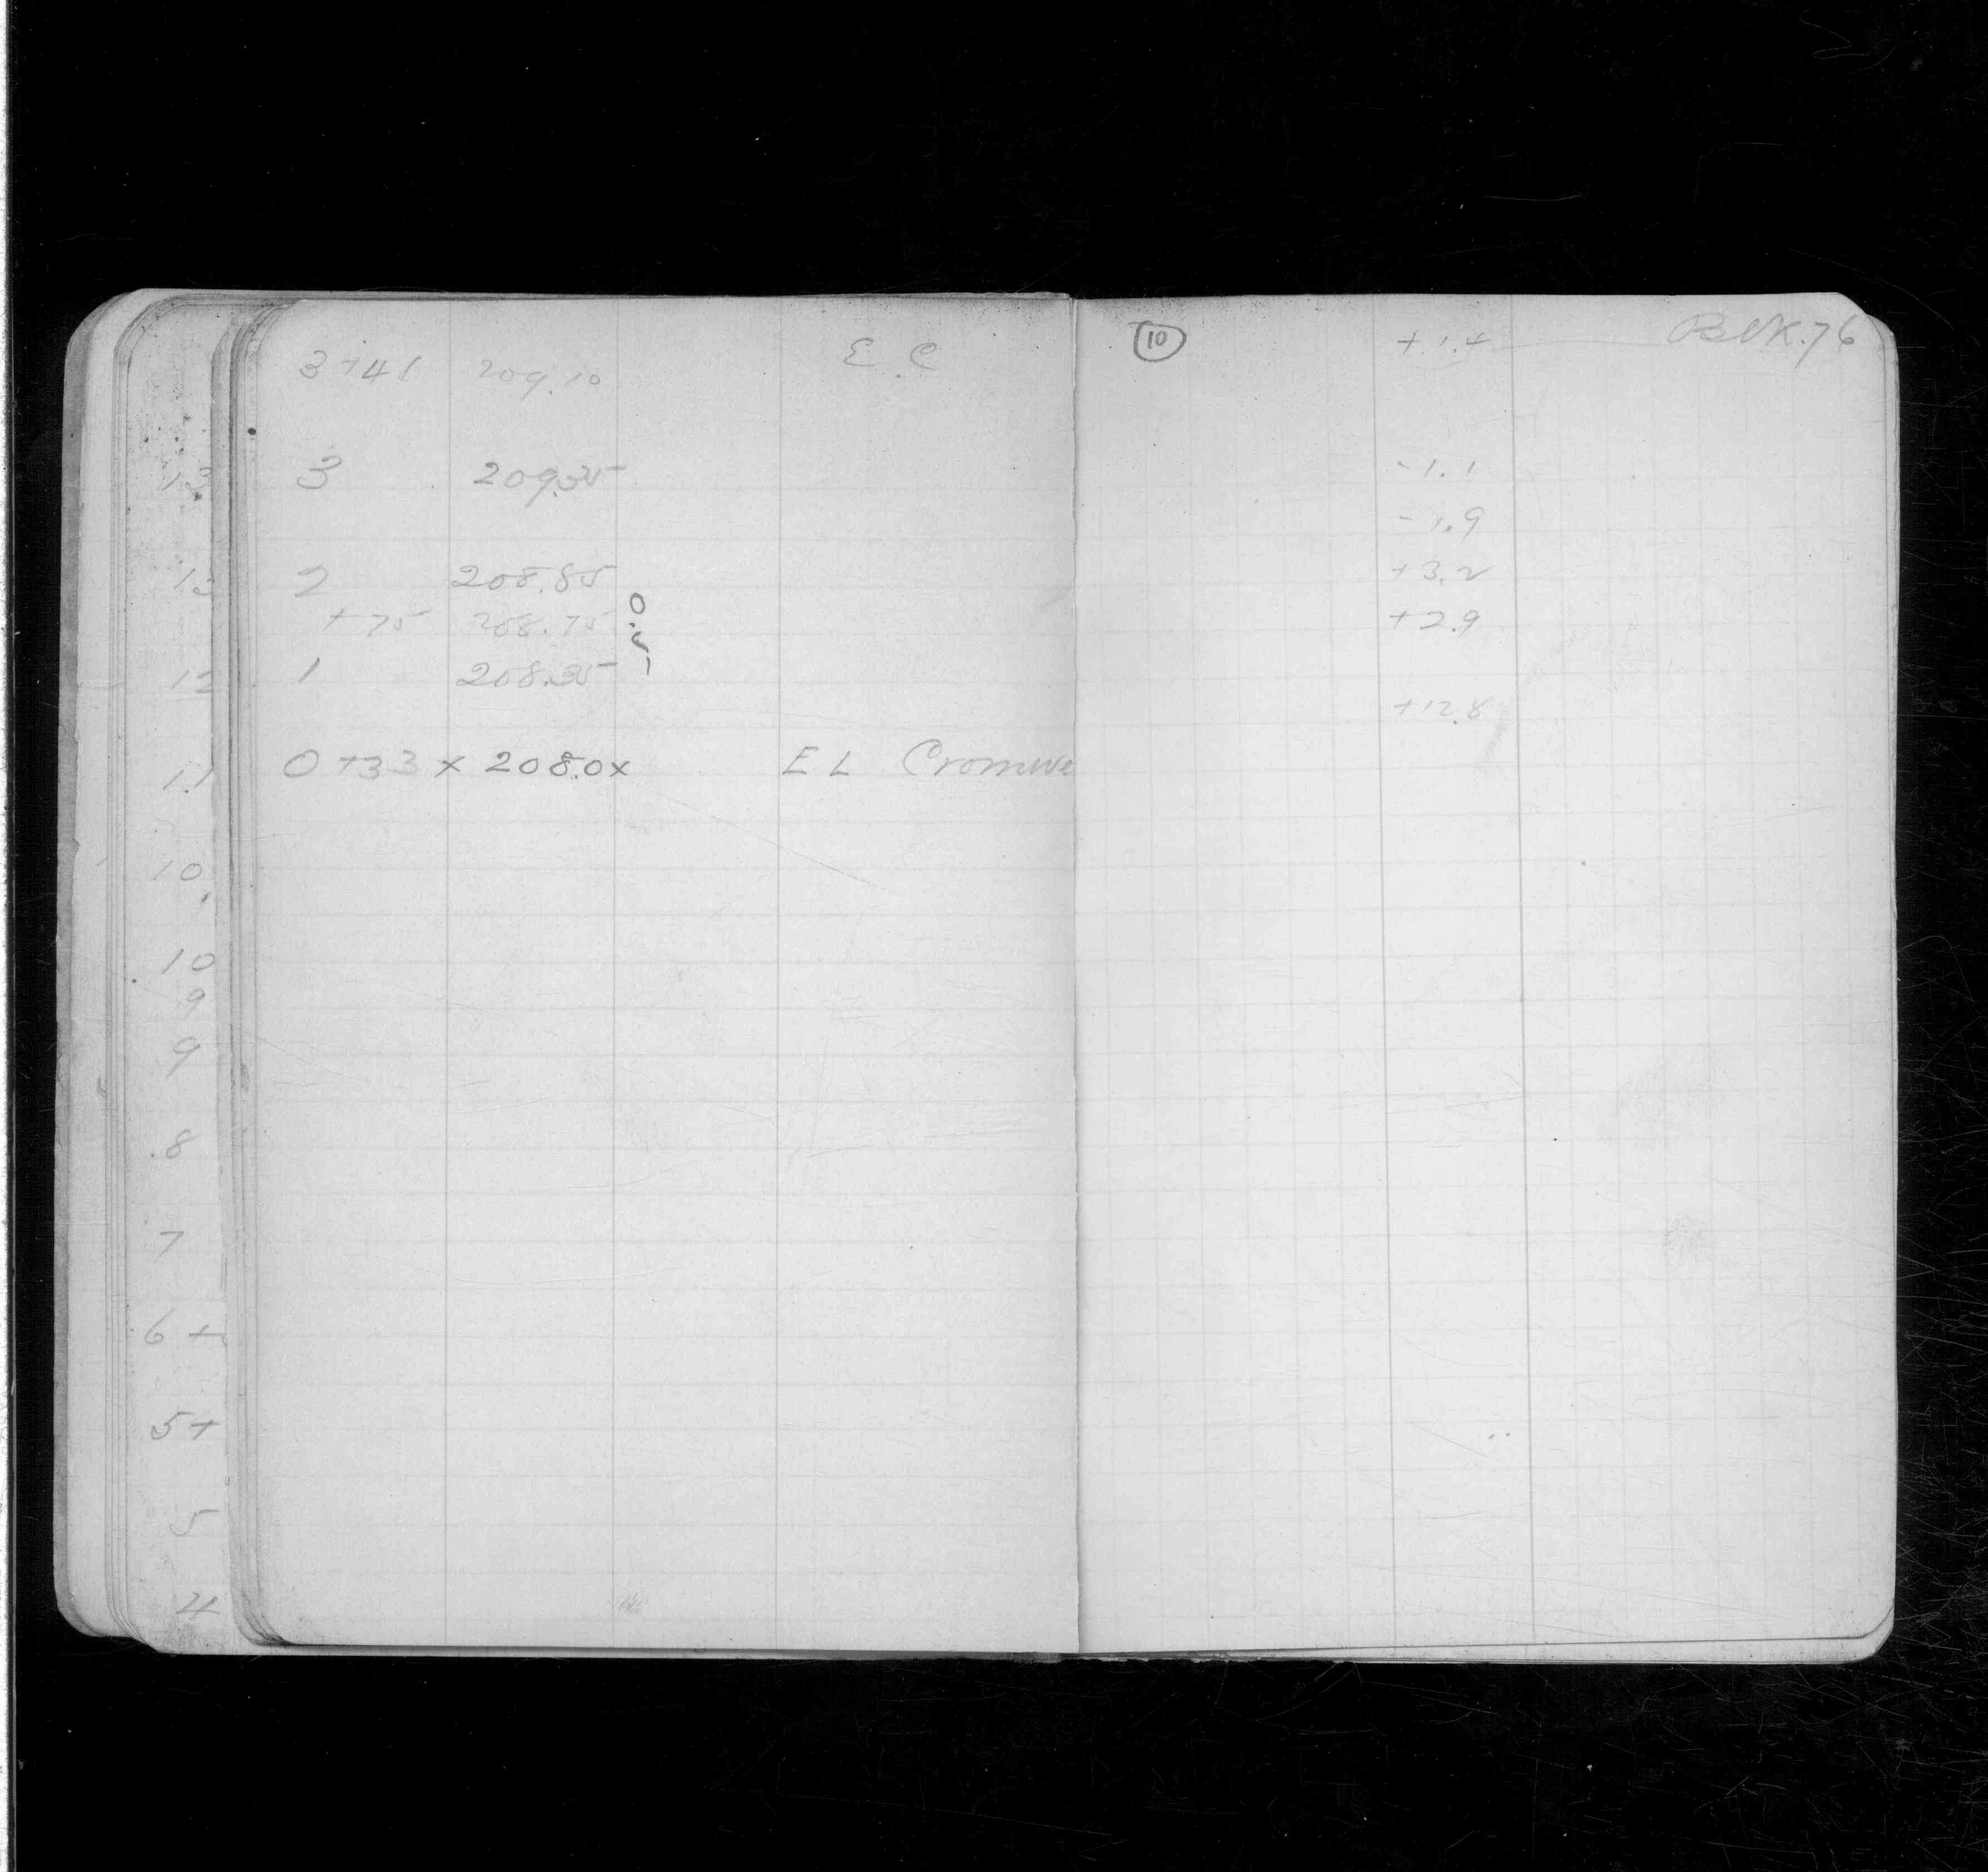 3+41 209.10 E.C
3 209.35
2 208.85
+75 208.75
0.5
1 208.35
0+33 x 208.0x EL Cromwe
13
12
11
10
10
9
9
8
7
6+
5+
5
4
10 +1.4 Blk.76
-1.1
-1.9
+3.2
+2.9
+12.8